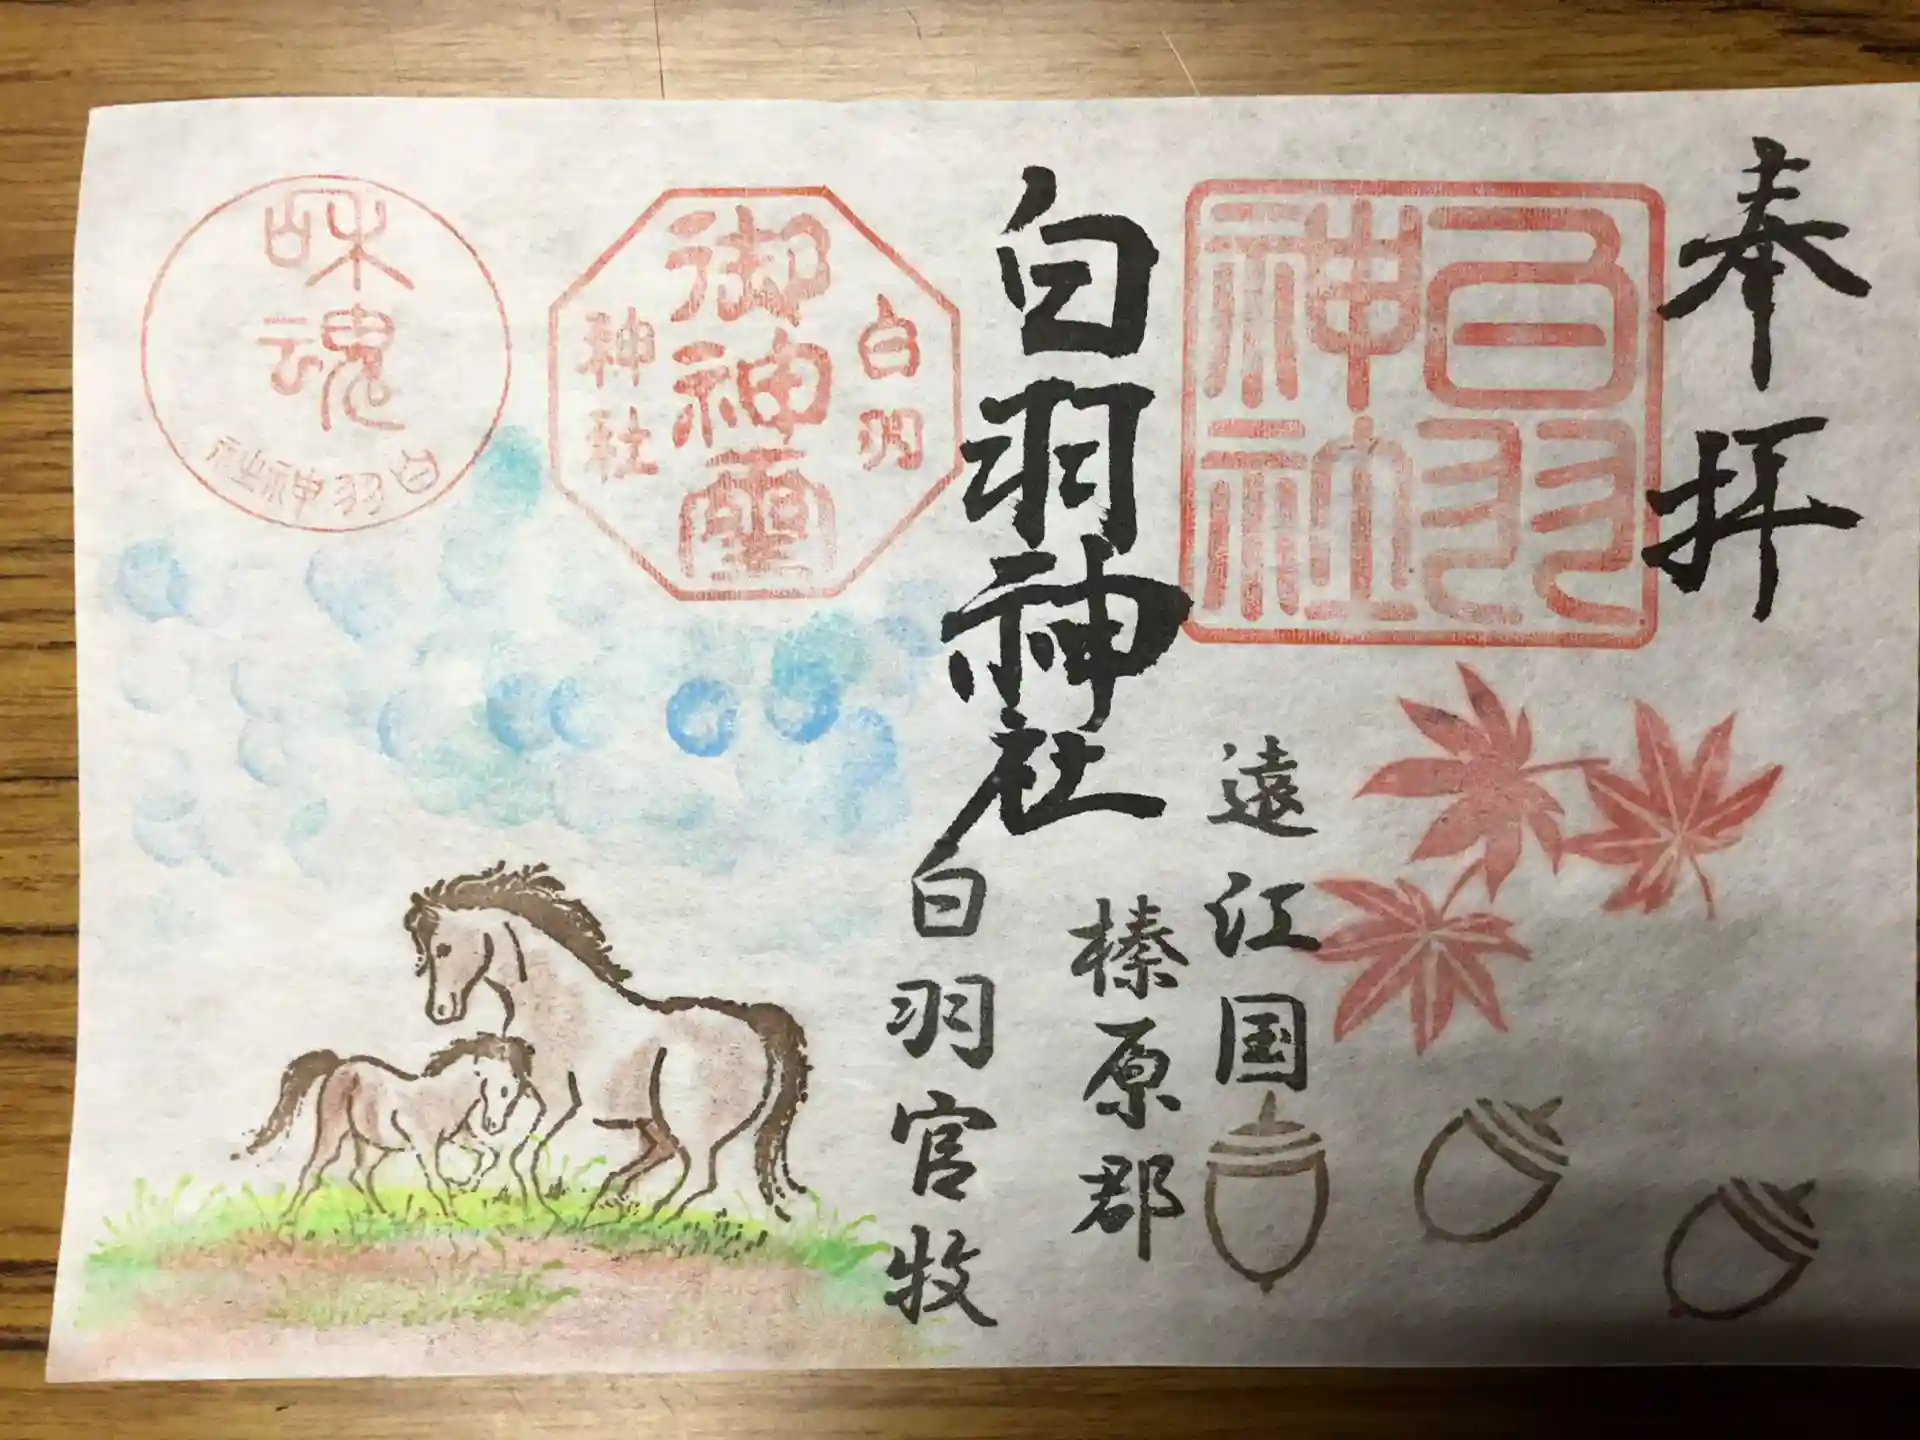 奉拝
白羽
神社
白羽神社
遠江国
榛原郡
白羽官牧
白羽
御神霊
神社
和魂
白羽神社